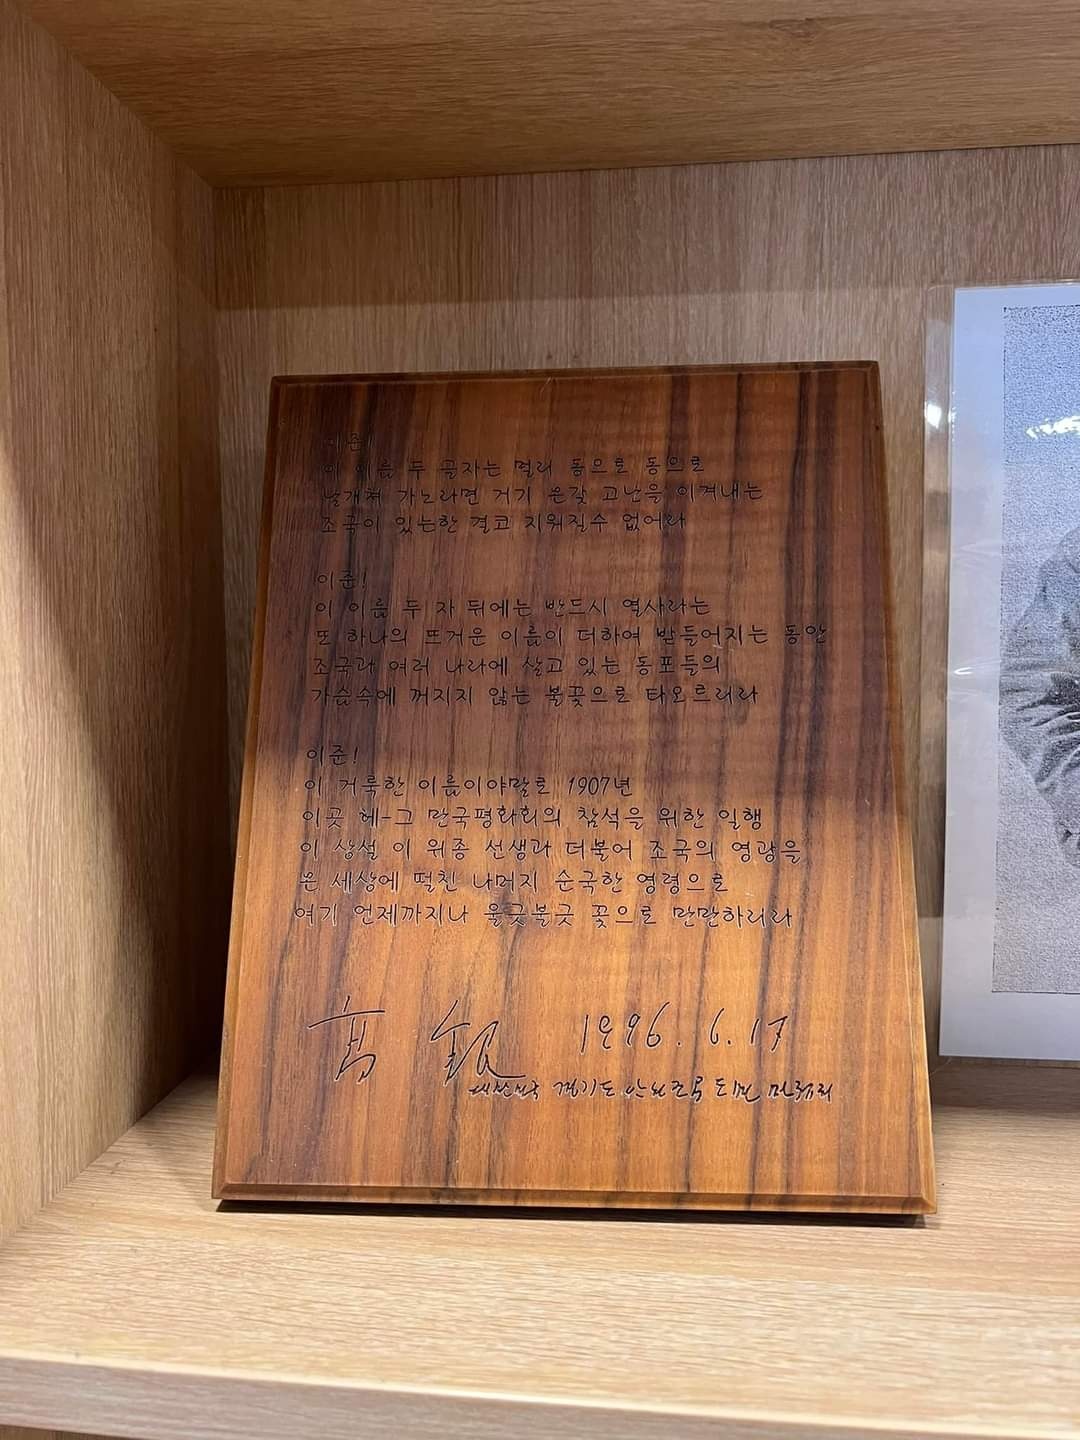 이준!
이 이름 두 글자는 멀리 동으로 동으로
날개쳐 가노라면 거기 온갖 고난을 이겨내는
조국이 있는한 결코 지워질수 없어라
이준!
이 이름 두 자 뒤에는 반드시 열사라는
또 하나의 뜨거운 이름이 더하여 받들어지는 동안
조국과 여러 나라에 살고 있는 동포들의
가슴속에 꺼지지 않는 불꽃으로 타오르리라
이준!
이 거룩한 이름이야말로 1907년
이곳 헤-그 만국평화회의 참석을 위한 일행
이 상설 이 위종 선생과 더불어 조국의 영광을
온 세상에 떨친 나머지 순국한 영령으로
여기 언제까지나 울긋불긋 꽃으로 만발하리라
高 銀 1996. 6. 17
대한민국 경기도